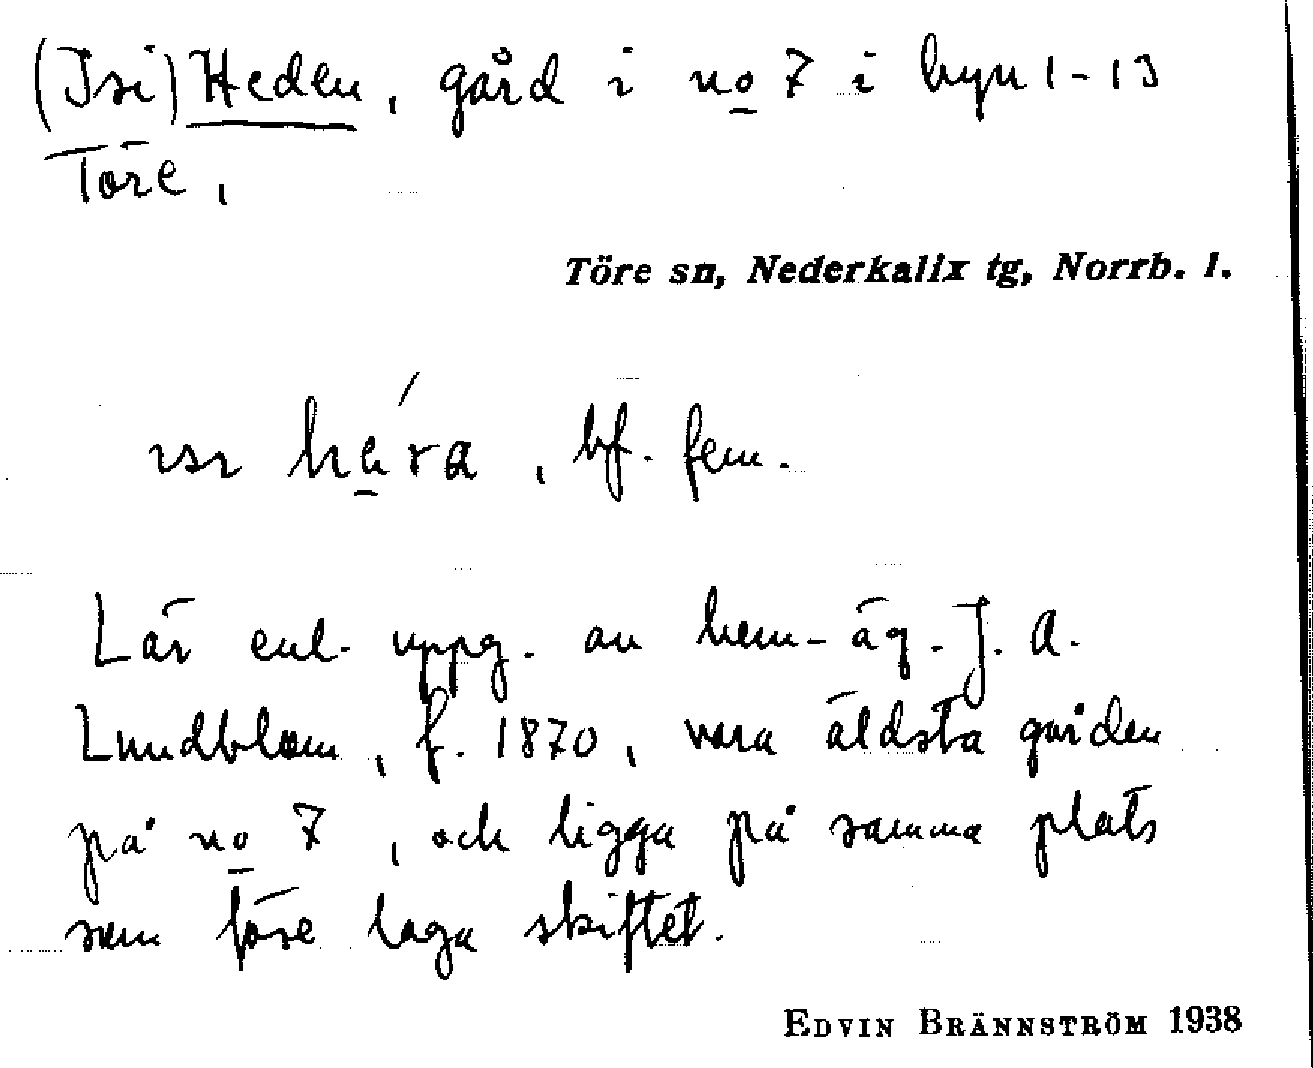 (Isi) Heden, gård i no 7 i byn 1-13
Töre,
Töre sn, Nederkalix tg, Norrb. l.
, bf. fem.
Lär enl. uppg. av hem-äg. J. A.
Lundblom, f. 1870, vara äldsta gården
på no 7, och ligga på samma plats
som före laga skiftet.
EDVIN BRÄNNSTRÖM 1938